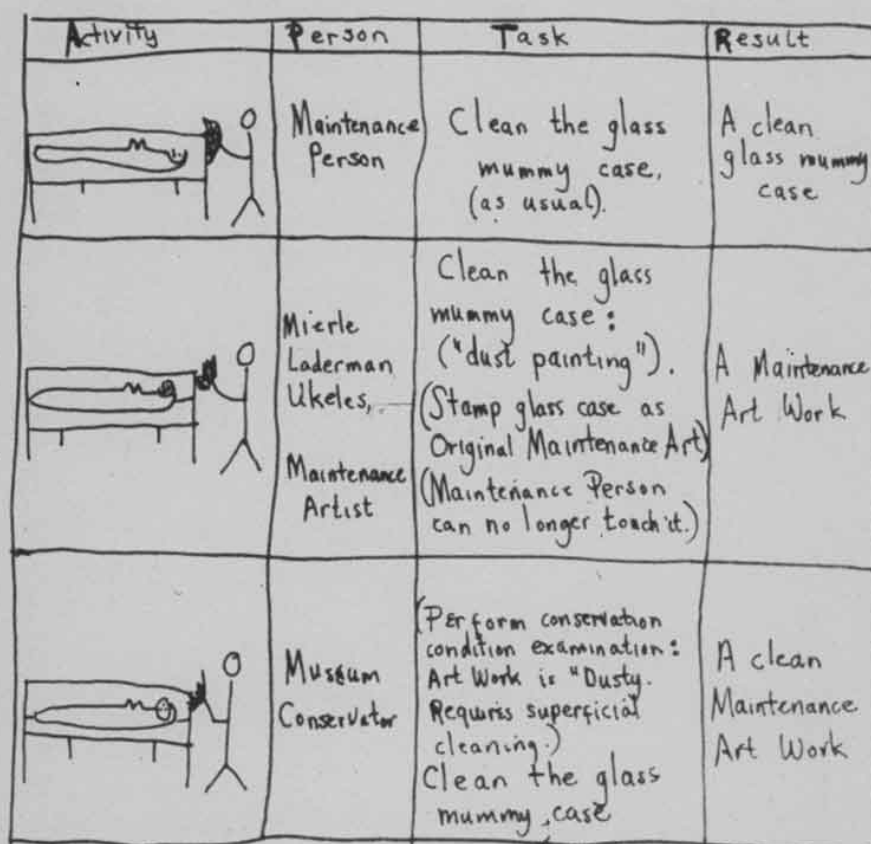 Activity Person Task Result
Maintenance
Person
Clean the glass
mummy case,
(as usual).
A clean
glass mummy
case
Mierle
Laderman
Ukeles,
Maintenance
Artist
Clean the glass
mummy case:
("dust painting").
(Stamp glass case as
Original Maintenance Art)
(Maintenance Person
can no longer touch it.)
A Maintenance
Art Work
Museum
Conservator
(Perform conservation
condition examination:
Art Work is "Dusty.
Requires superficial
cleaning.)
Clean the glass
mummy case
A clean
Maintenance
Art Work